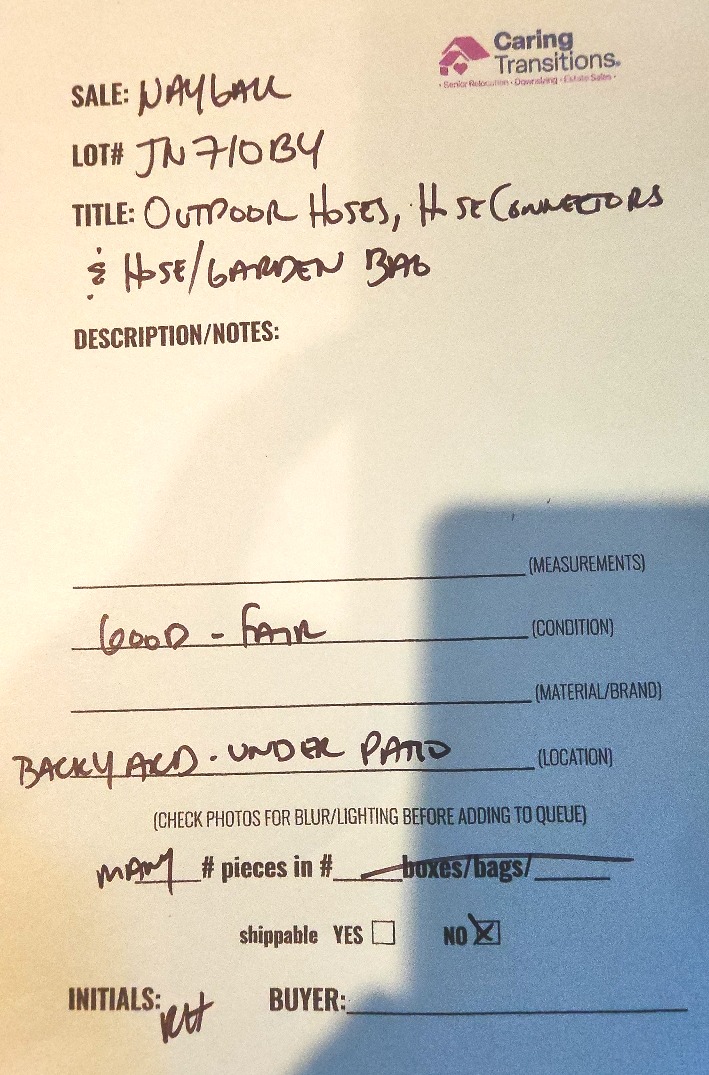 Caring
Transitions.
• Senior Relocation • Downsizing • Estate Sales •
SALE: NAYGALL
LOT# JN710BY
TITLE: OUTDOOR HOSES, HSE CONNECTORS
& HOSE/GARDEN BAG
DESCRIPTION/NOTES:
(MEASUREMENTS)
GOOD - FAIR (CONDITION)
(MATERIAL/BRAND)
BACKYARD - UNDER PATIO (LOCATION)
(CHECK PHOTOS FOR BLUR/LIGHTING BEFORE ADDING TO QUEUE)
MANY # pieces in # boxes/bags/
shippable YES NO
INITIALS: RH BUYER: